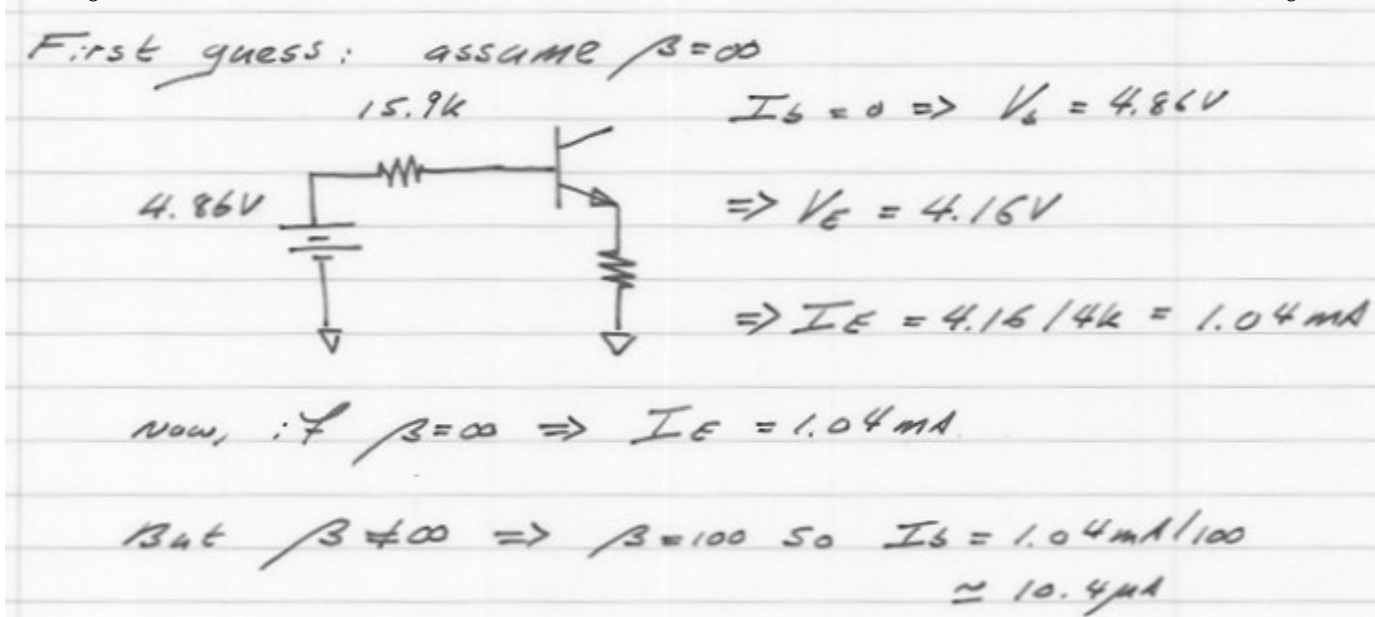 First guess: assume β=∞
15.9k
I_b = 0 => V_b = 4.86V
4.86V
=> V_E = 4.16V
=> I_E = 4.16/4k = 1.04mA
Now, if β=∞ => I_E = 1.04mA
But β≠∞ => β=100 so I_b = 1.04mA/100
≃ 10.4μA